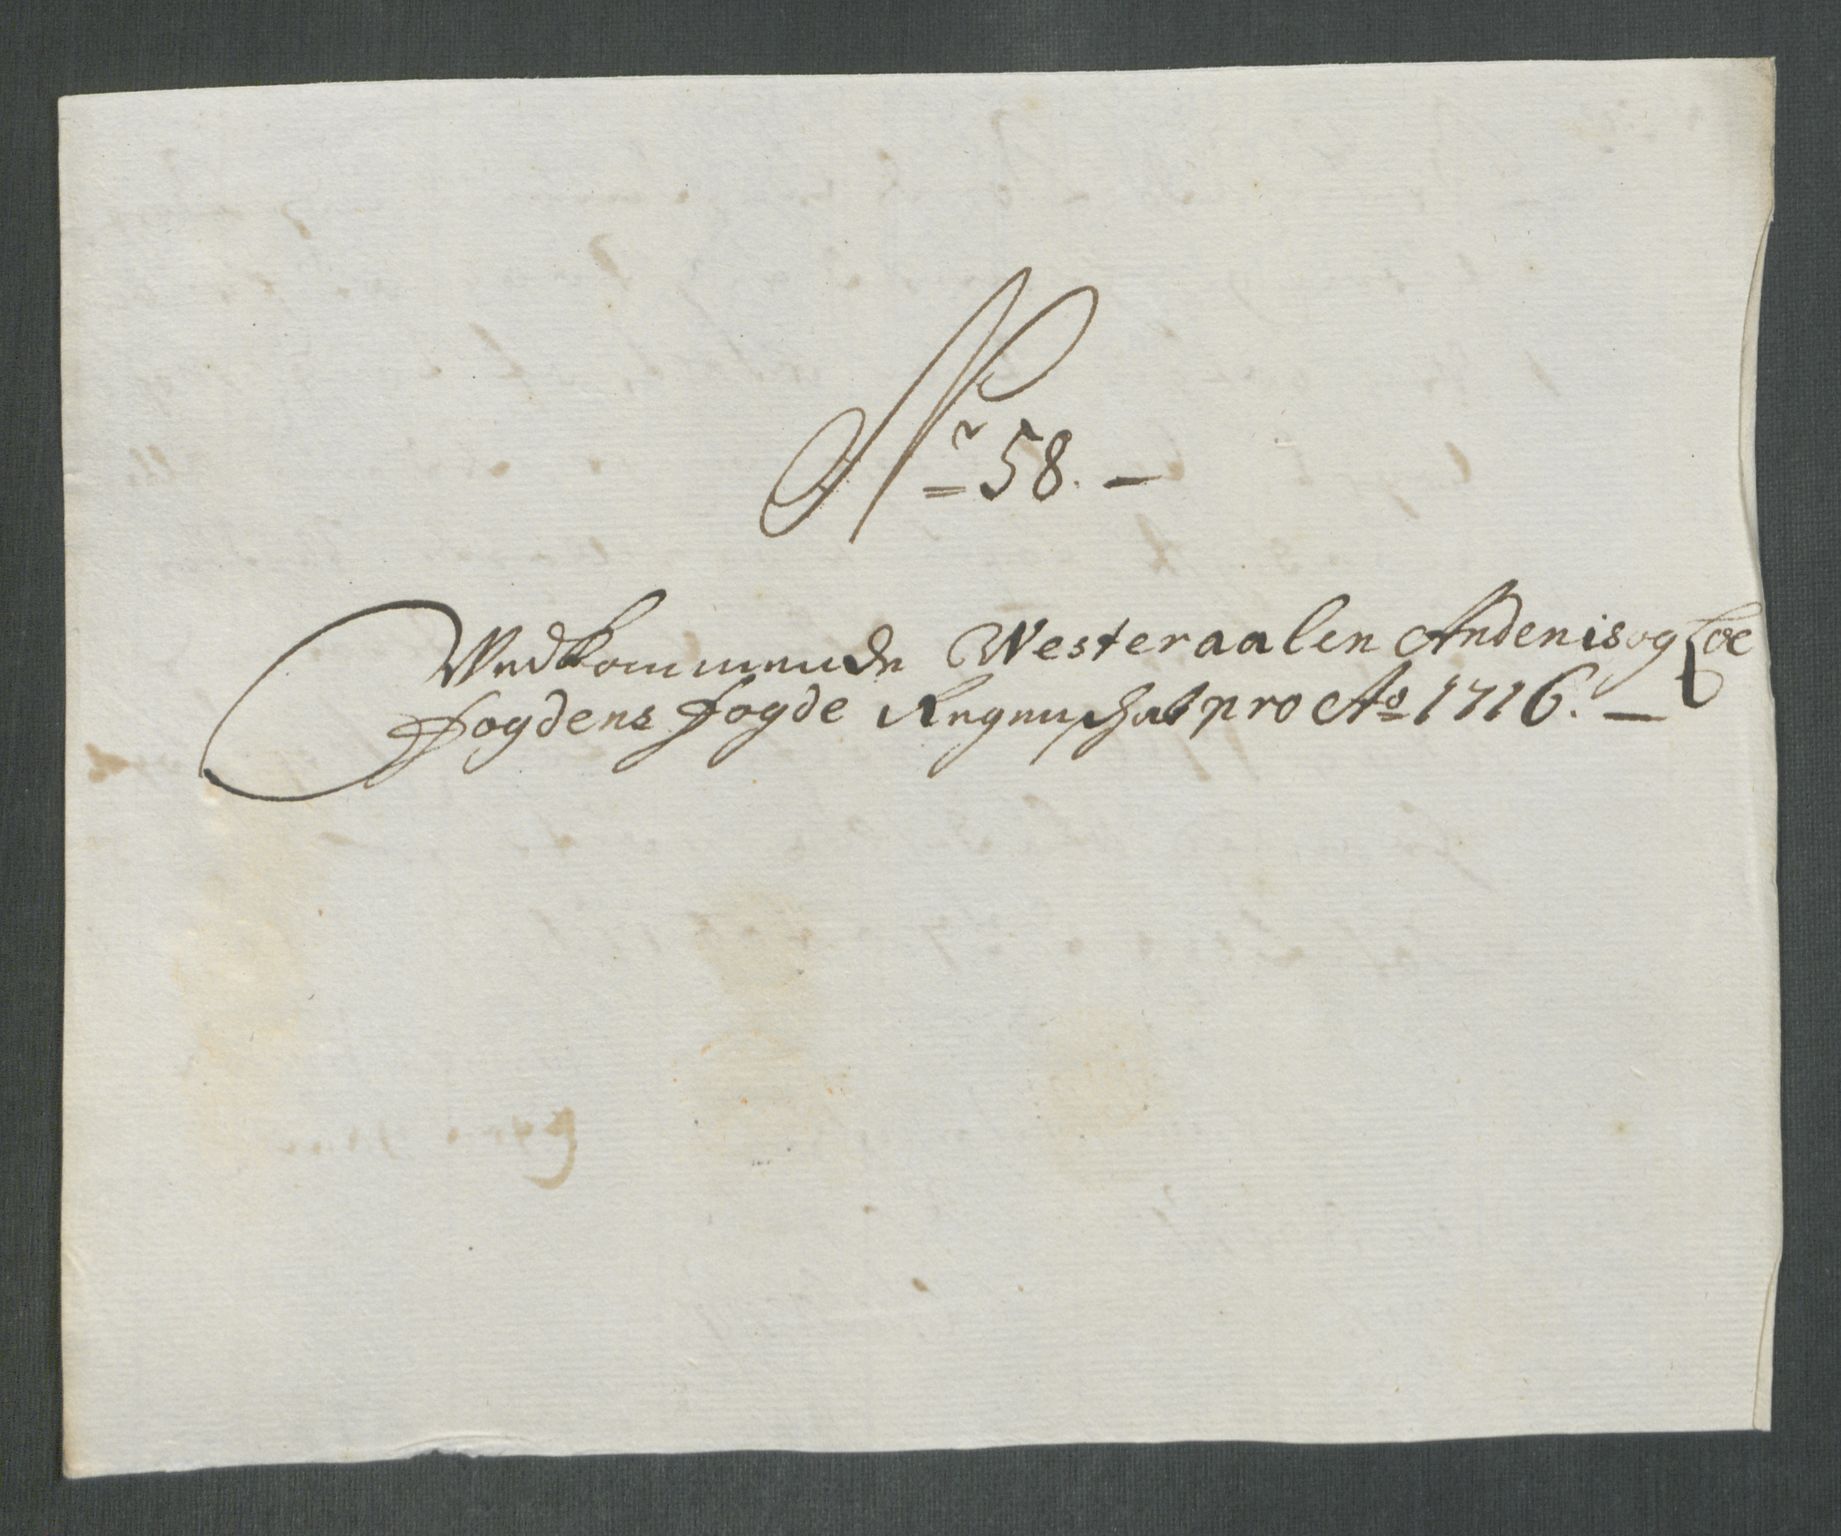 Nr 58. —
Vedkommende Westeraalen Andenis og Loe
Fogdens Fogde Regenschab pro Ao 1716. —